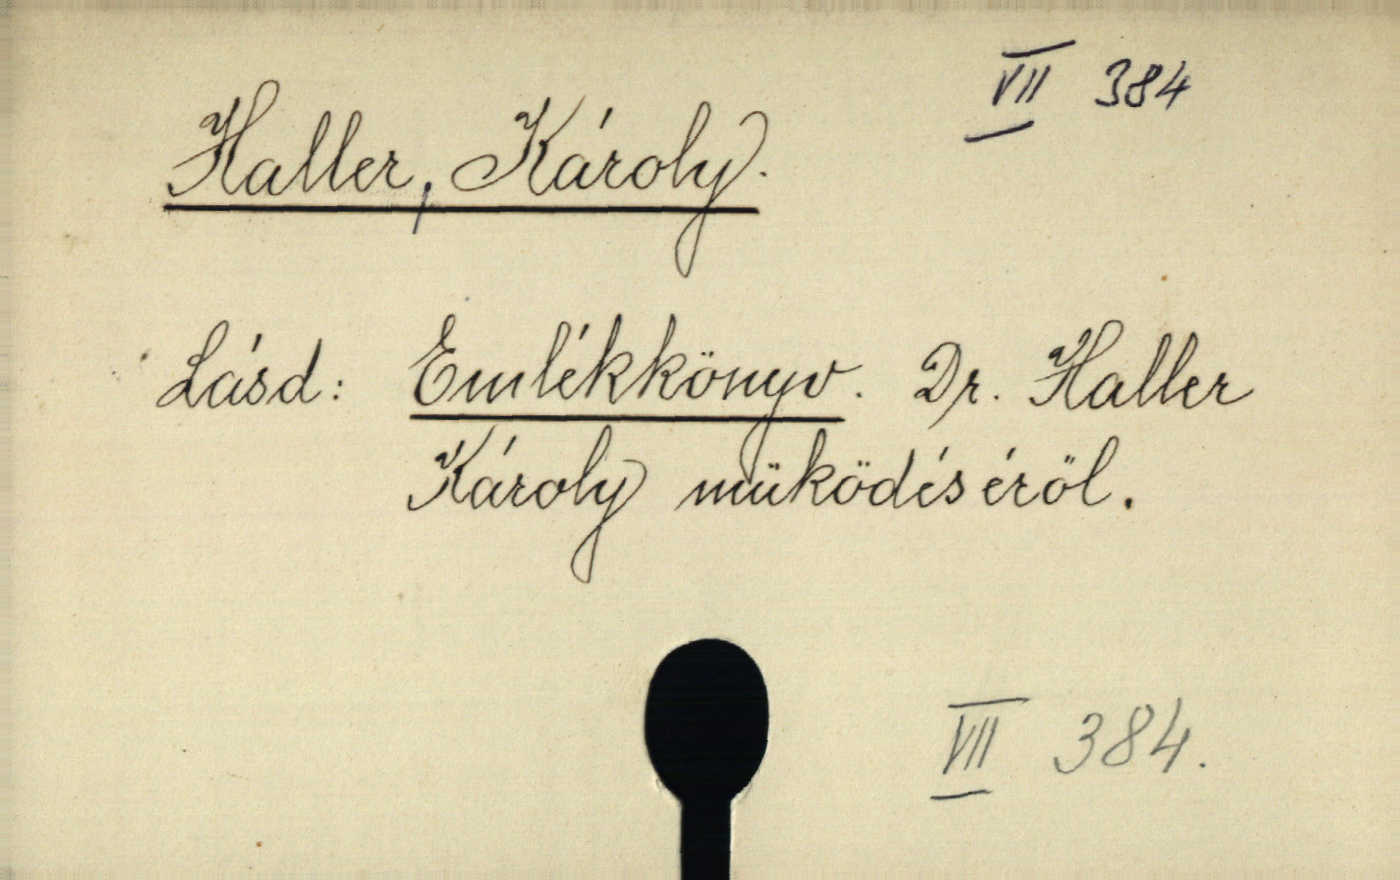 VII 384
Haller, Károly.
Lásd: Emlékkönyv. Dr. Haller
Károly müködéséröl.
VII 384.